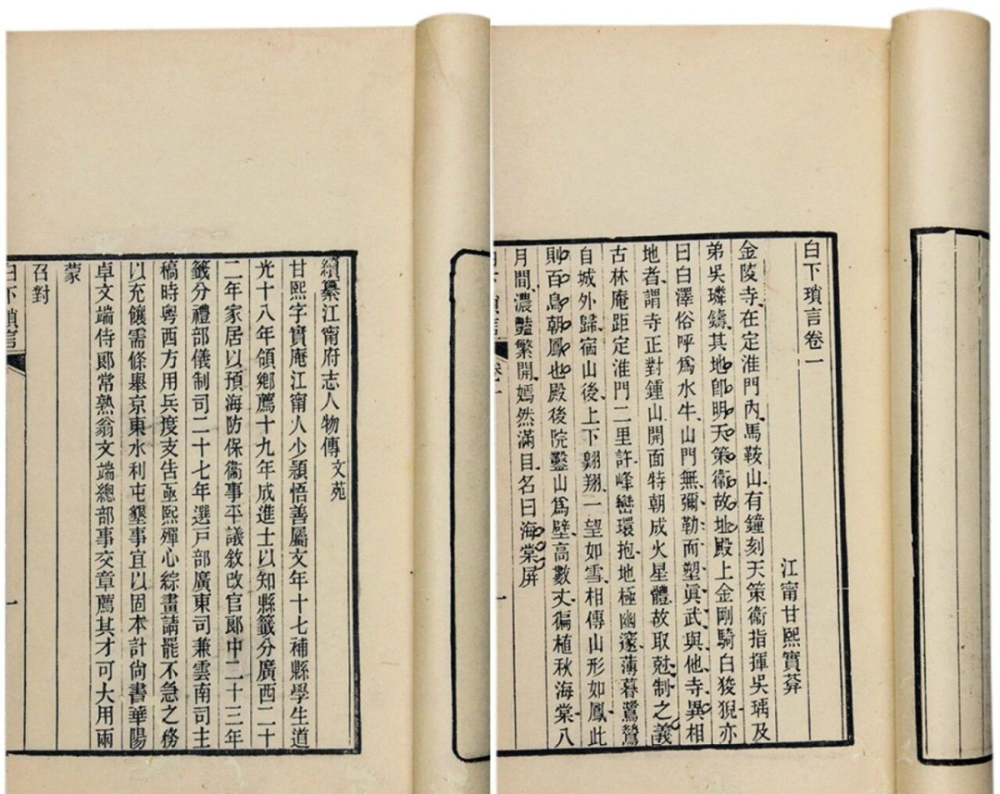 白下瑣言卷一
江甯甘熙實菴
金陵寺在定淮門內馬鞍山有鐘刻天策衞指揮吳瑀及
弟吳璘鑄其地卽明天策衞故址殿上金剛騎白狻猊亦
曰白澤俗呼爲水牛山門無彌勒而塑眞武與他寺異相
地者謂寺正對鍾山開面特朝成火星體故取尅制之義
古林庵距定淮門二里許峰巒環抱地極幽邃薄暮鷺鷥
自城外歸宿山後上下翱翔一望如雪相傳山形如鳳此
則百鳥朝鳳也殿後院鑿山爲壁高數丈徧植秋海棠八
月間濃豔繁開嫣然滿目名曰海棠屏
白下瑣言 卷一 一
續纂江甯府志人物傳 文苑
甘熙字實庵江甯人少穎悟善屬文年十七補縣學生道
光十八年領鄉薦十九年成進士以知縣籤分廣西二十
二年家居以預海防保衞事平議敘改官郞中二十三年
籤分禮部儀制司二十七年選戸部廣東司兼雲南司主
稿時粵西方用兵度支告亟熙殫心綜畫請罷不急之務
以充饟需條舉京東水利屯墾事宜以固本計尙書華陽
卓文端侍郞常熟翁文端總部事交章薦其才可大用兩
蒙
召對
白下瑣言 一